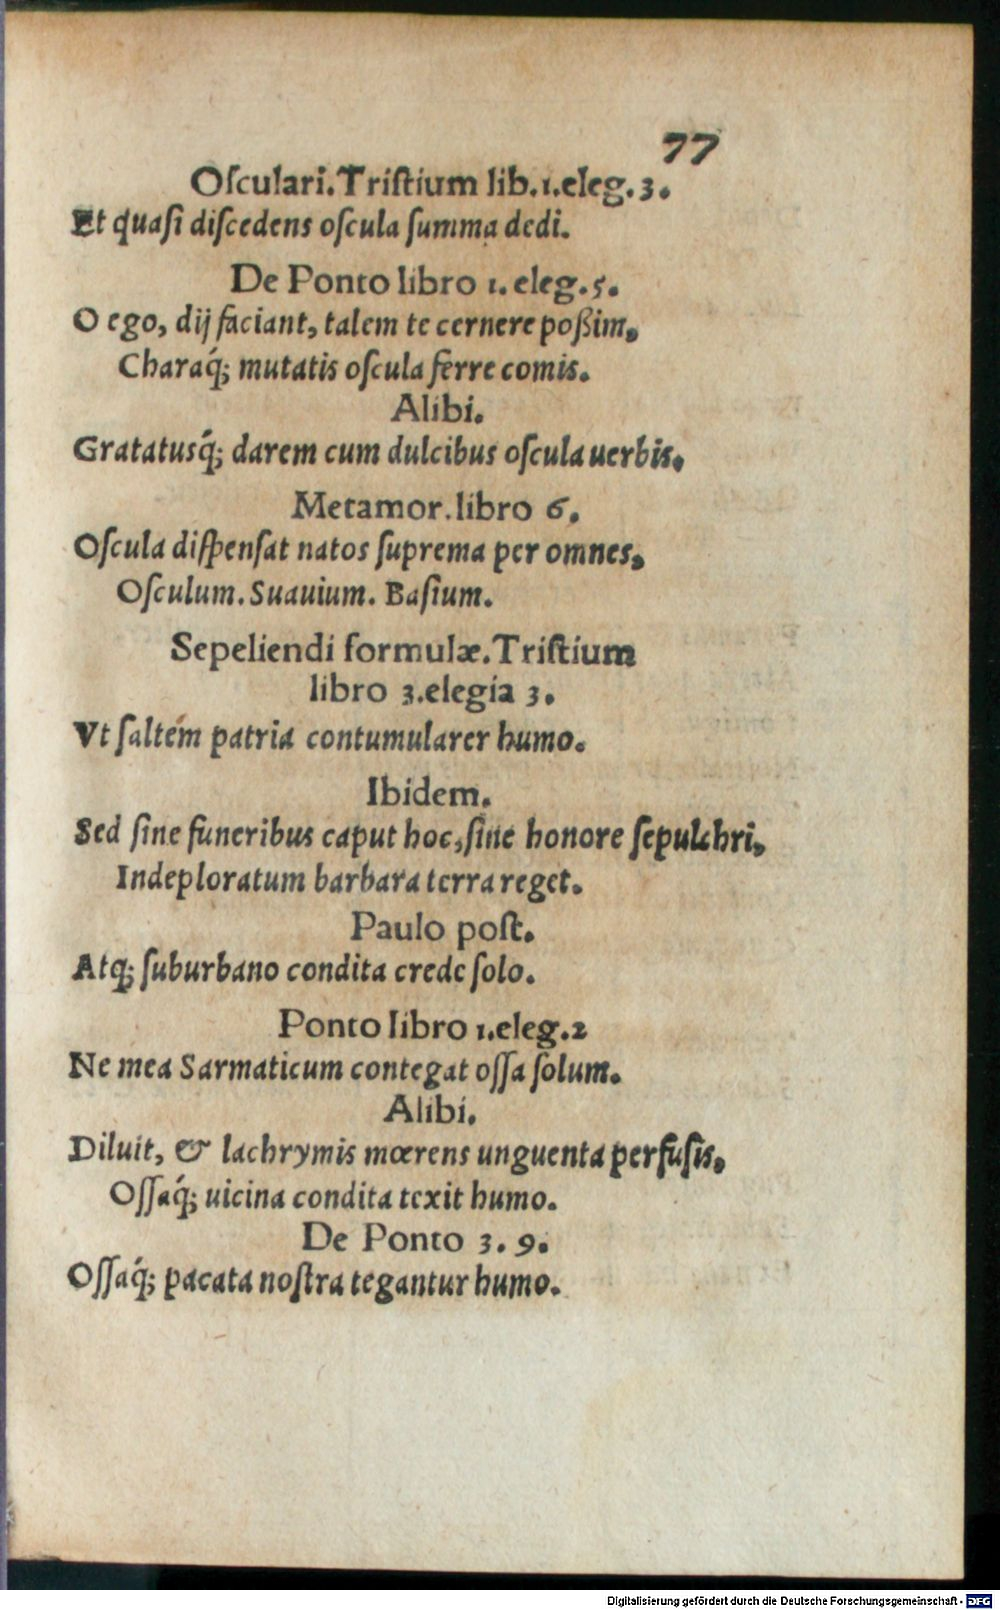 77
Osculari. Tristium lib. 1. eleg. 3.
Et quasi discedens oscula summa dedi.
De Ponto libro 1. eleg. 5.
O ego, dij faciant, talem te cernere poßim,
Charaq́; mutatis oscula ferre comis.
Alibi.
Gratatusq́; darem cum dulcibus oscula uerbis,
Metamor. libro 6.
Oscula dispensat natos suprema per omnes,
Osculum. Suauium. Basium.
Sepeliendi formulæ. Tristium
libro 3. elegia 3.
Vt saltém patria contumularer humo.
Ibidem.
Sed sine funeribus caput hoc, sine honore sepulchri,
Indeploratum barbara terra reget.
Paulo post.
Atq; suburbano condita crede solo.
Ponto libro 1. eleg. 2
Ne mea Sarmaticum contegat ossa solum.
Alibi.
Diluit, & lachrymis mœrens unguenta perfusis,
Ossaq́; uicina condita texit humo.
De Ponto 3. 9.
Ossaq́; pacata nostra tegantur humo.
Digitalisierung gefördert durch die Deutsche Forschungsgemeinschaft - DFG